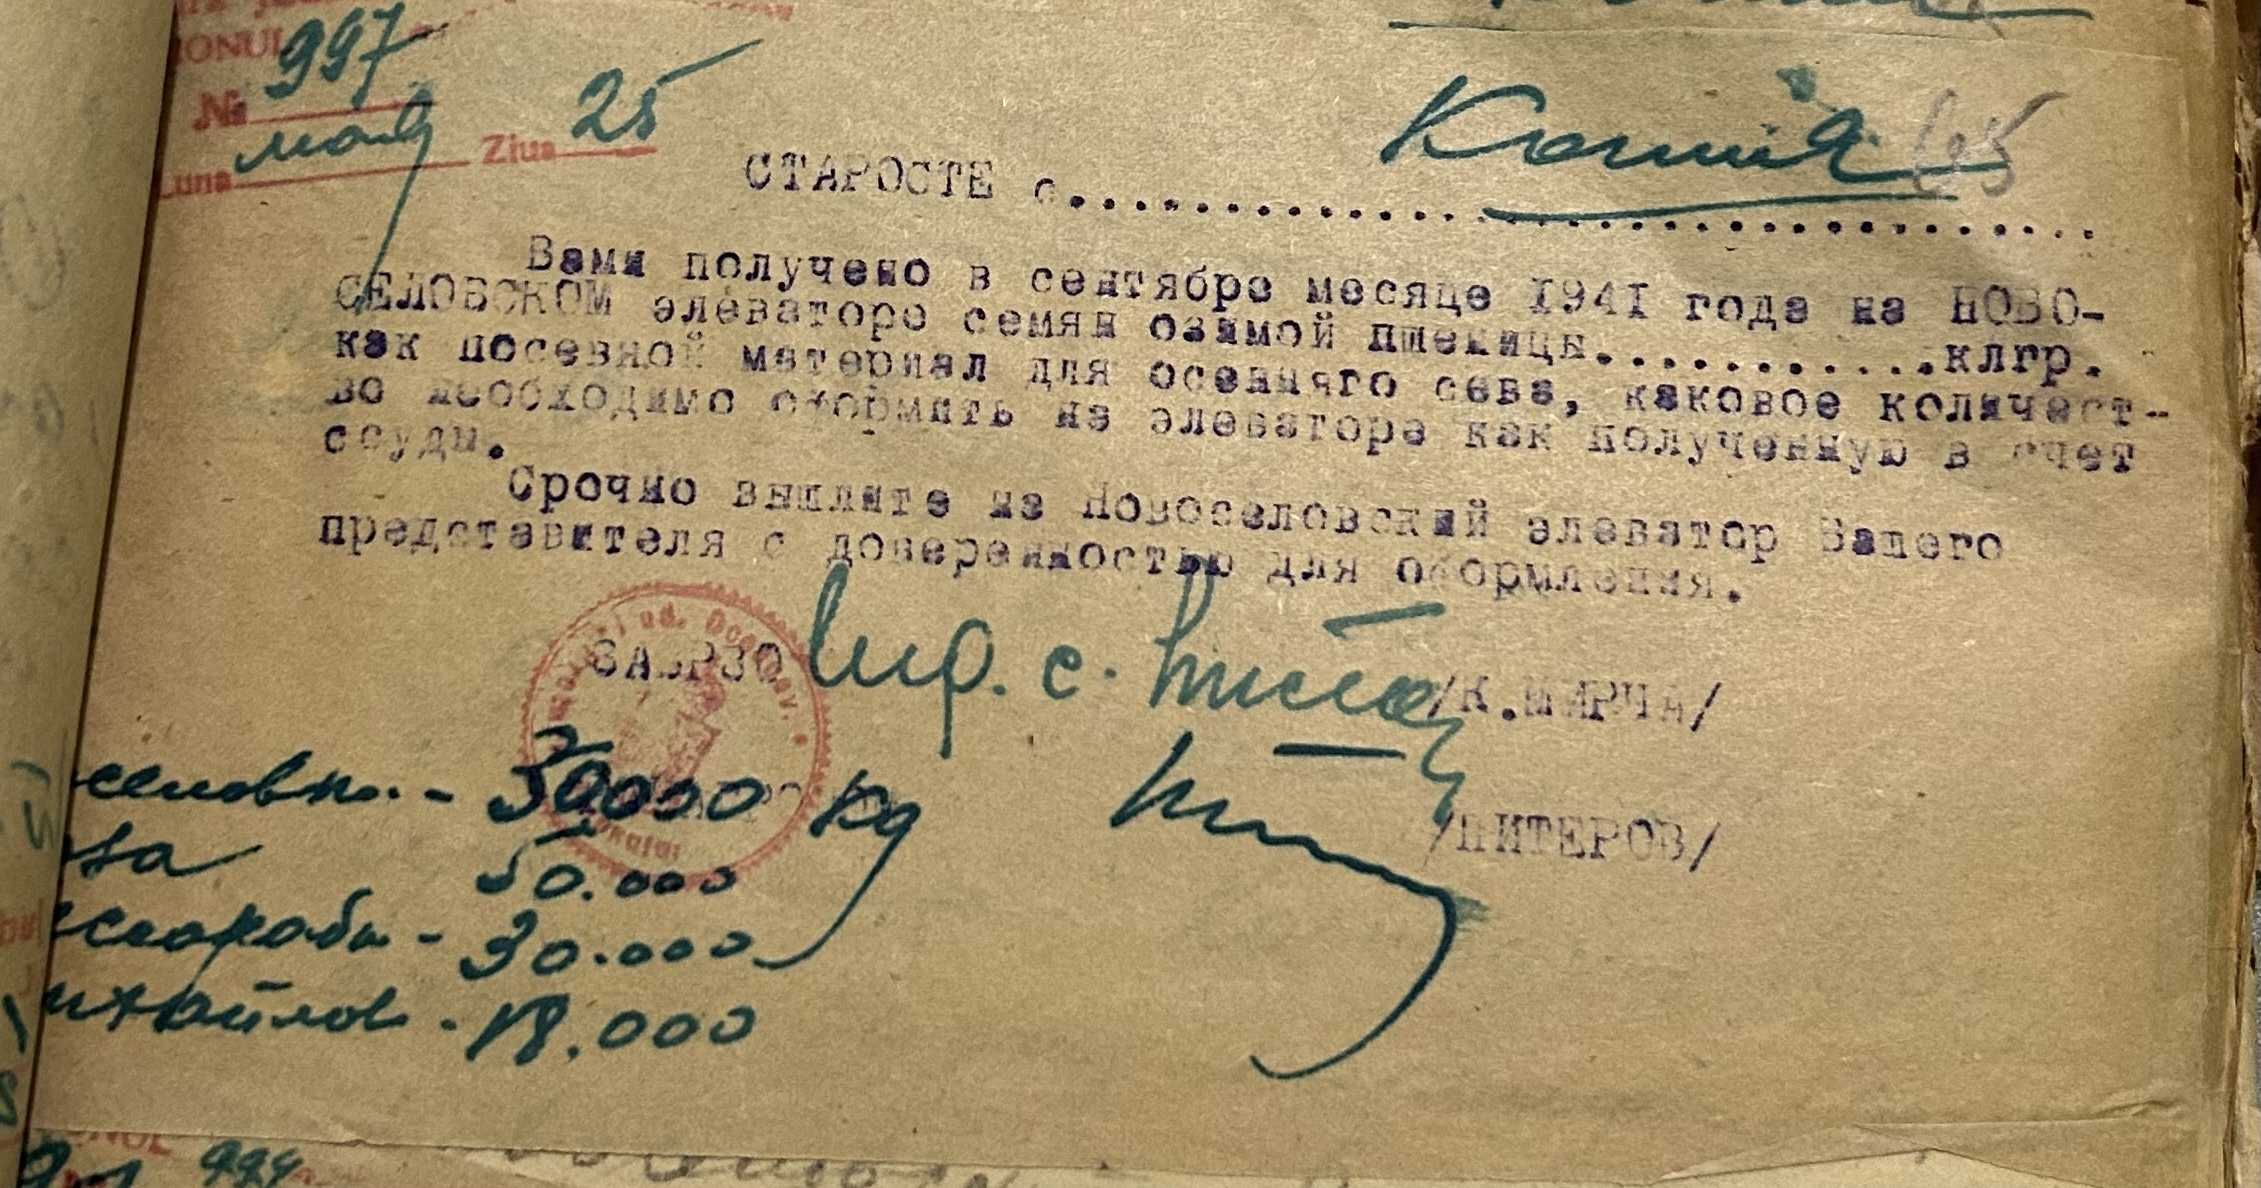 IONUL
№ 997
Luna мая Ziua 25
Копия 65
СТАРОСТЕ с..............................
Вами получено в сентябре месяце 1941 года на НОВО-
СЕЛОВСКОМ элеваторе семян озимой пшеницы............клгр.
как посевной материал для осеннего сева, каковое количест-
во необходимо оформить на элеваторе как полученную в счет
ссуды.
Срочно вышлите на Новоселовский элеватор Вашего
представителя с доверенностью для оформления.
ЗАВРЗО /К.ШИРЧА/
/ПИТЕРОВ/
селовка - 30000 kg
50.000
30.000
ихайлов - 18.000
994